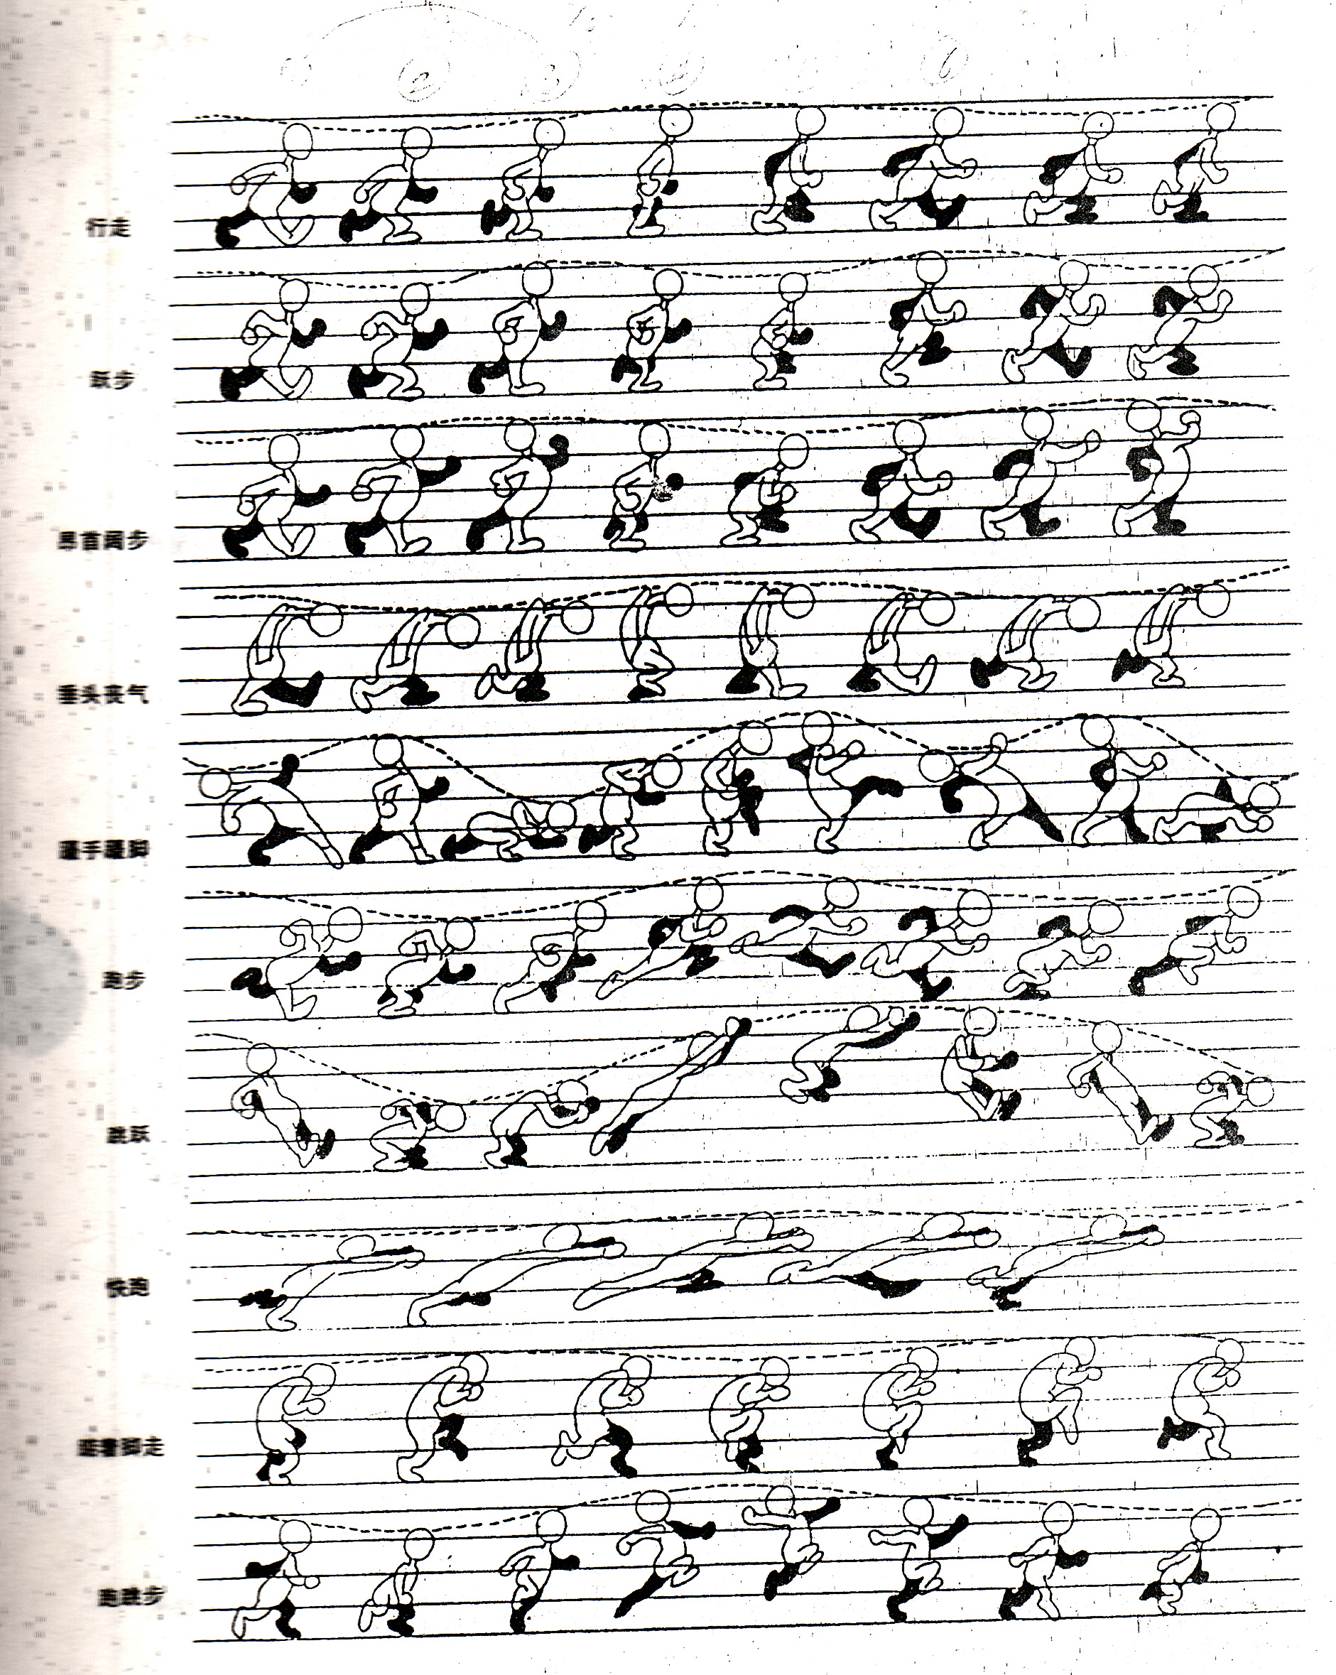 行走
跃步
昂首阔步
垂头丧气
蹑手蹑脚
跑步
跳跃
快跑
踮着脚走
跑跳步